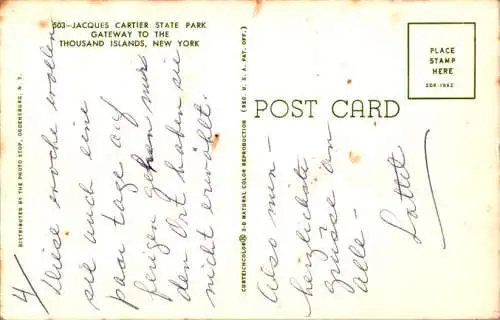 503—JACQUES CARTIER STATE PARK
GATEWAY TO THE
THOUSAND ISLANDS, NEW YORK
4/
Diese woche wollen
sie auch eine
paar tage auf
ferigen gehen nur
den Ort haben sie
nicht erwählt.
Also nun —
herzlichste
grüsse an
alle —
DISTRIBUTED BY THE PHOTO STOP, OGDENSBURG, N. Y.
CURTEICHCOLOR® 3-D NATURAL COLOR REPRODUCTION (REG. U. S. A. PAT. OFF.)
POST CARD
PLACE
STAMP
HERE